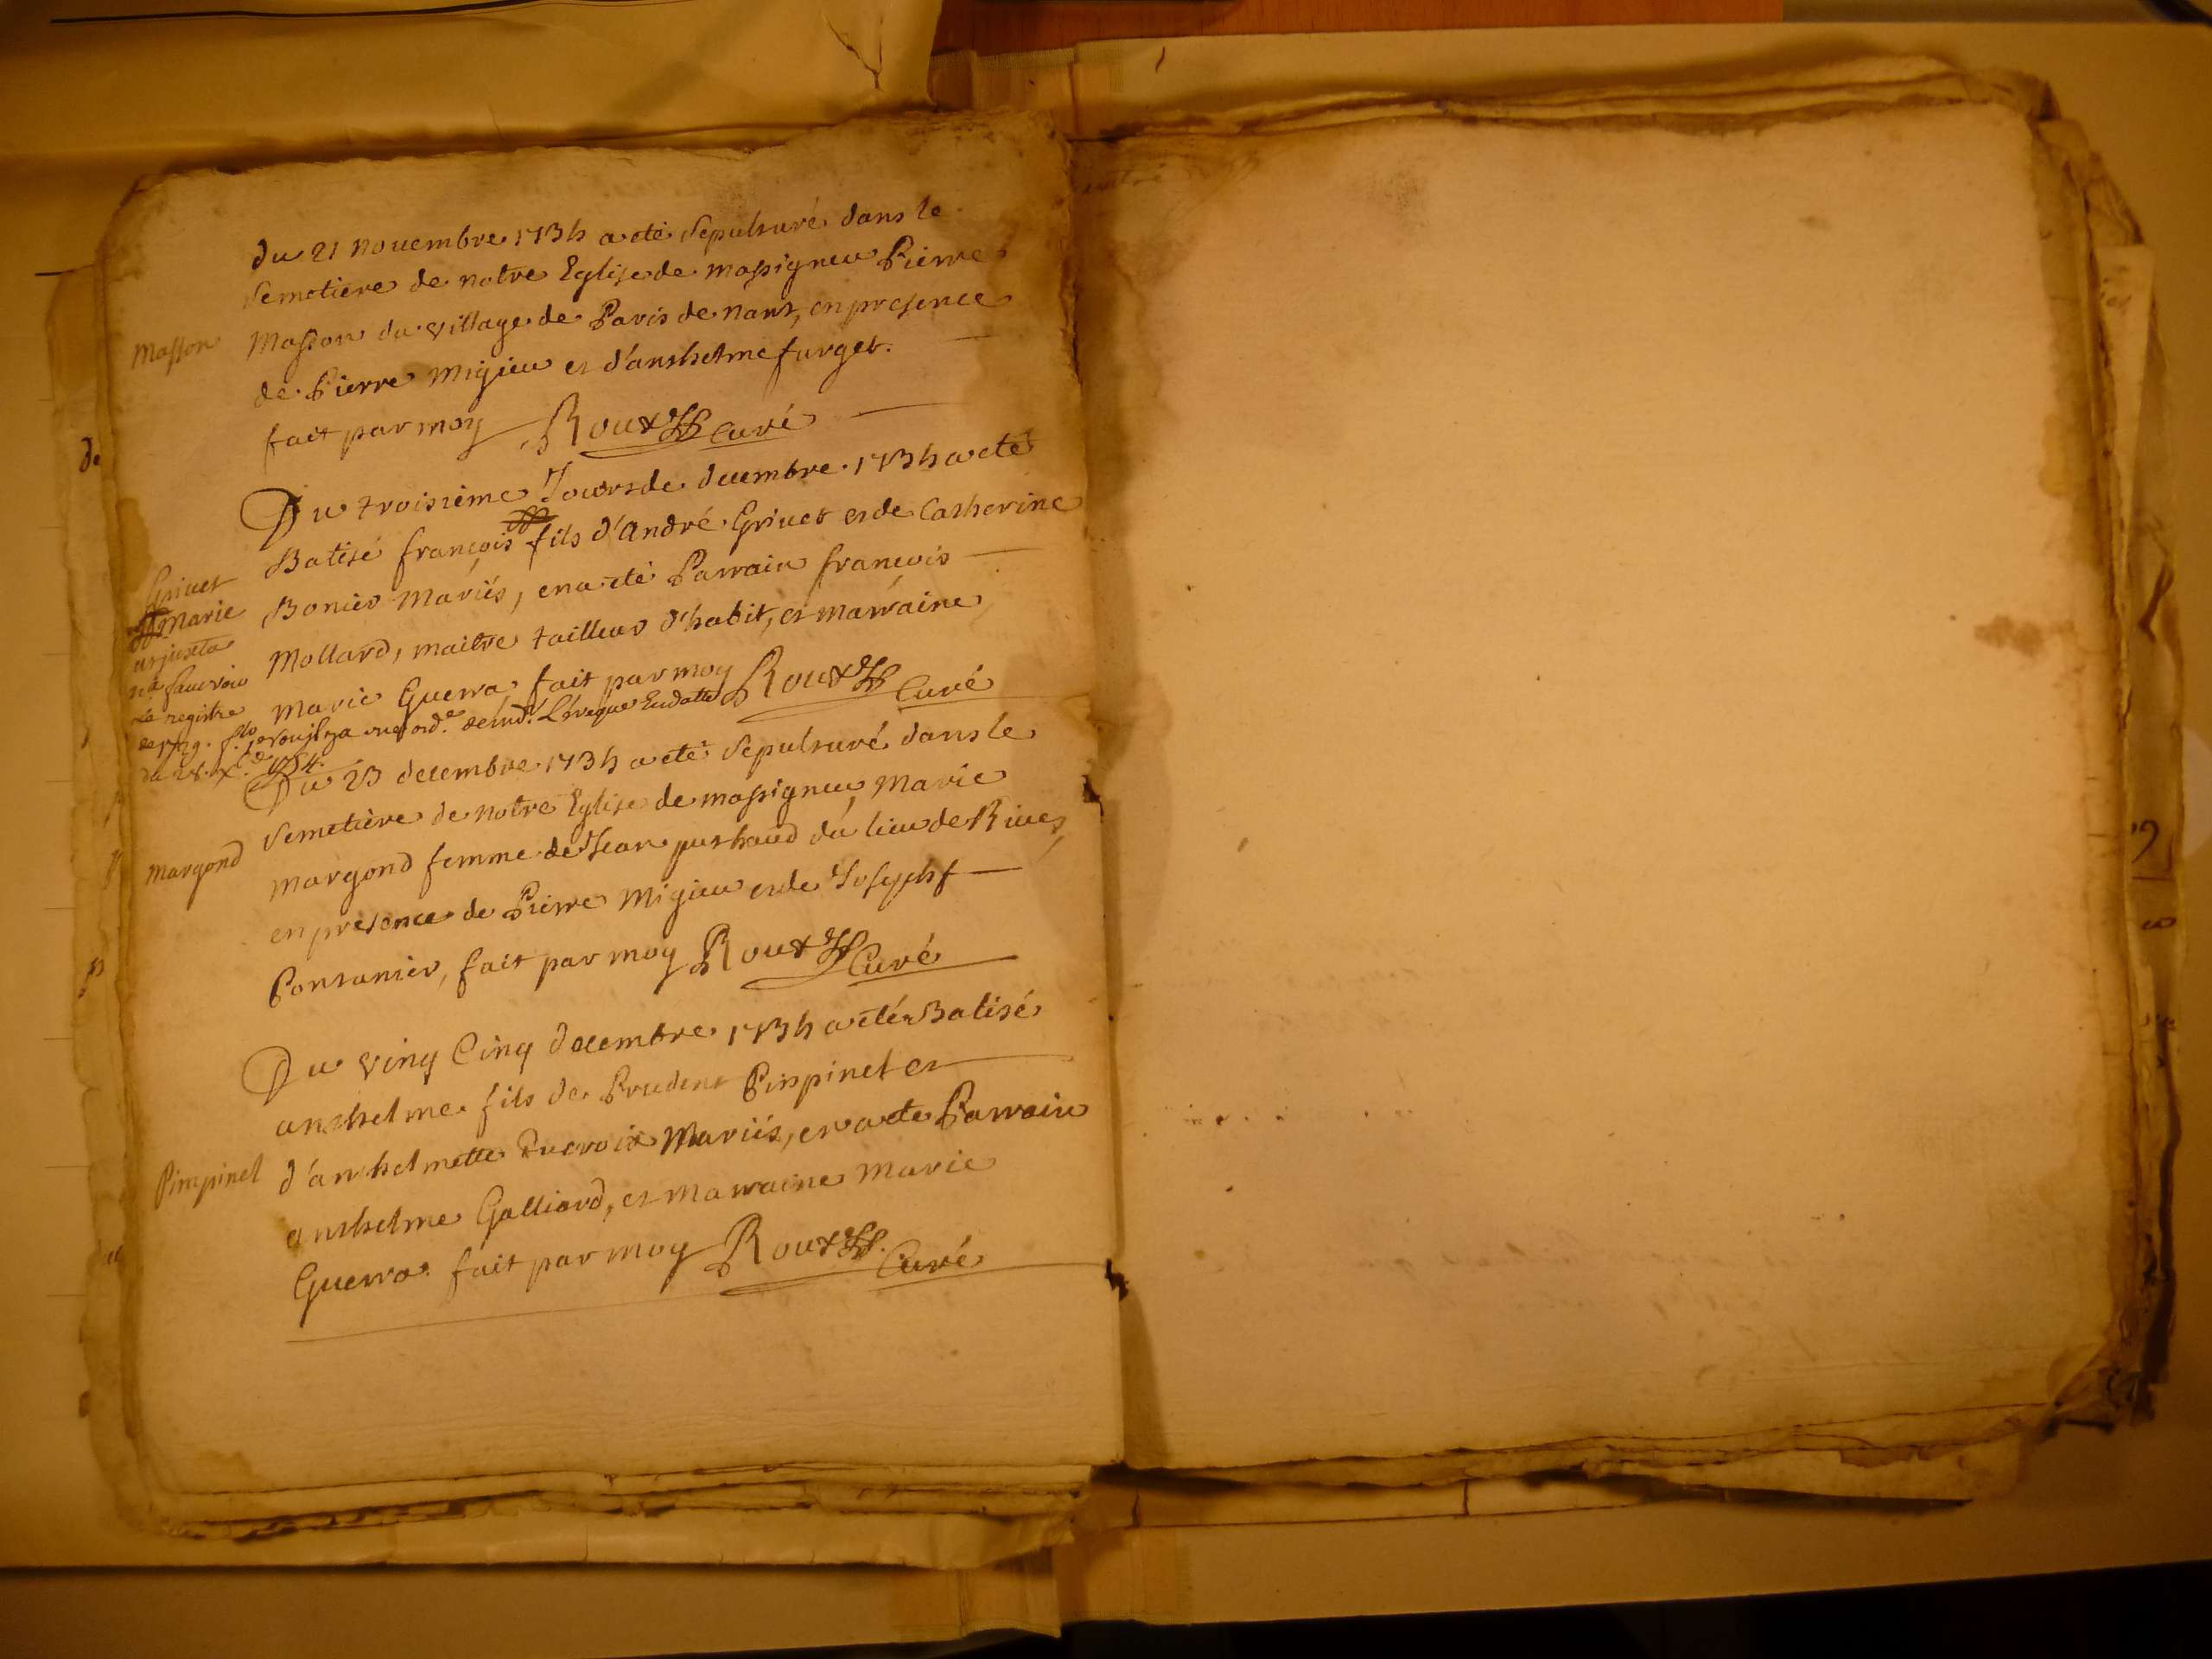 du 21 novembre 1734 a eté sepulturé dans le
semetiere de notre Eglise de massigneu Pierre
Masson
Masson du village de Paris de nant, en presence
de Pierre Migieu et d'anthelme furget.
fait par moy Roux Curé
Du troisiéme Jour de decembre 1734 a eté
Batisé françois fils d'André Grivet et de Catherine
Grivet
Bonier Mariés, en a eté Parrain francois
Marie
Mollard, maitre tailleur d'habit, et marraine
Marie Guerra fait par moy Roux Curé
Le registre
de L'eveque En datte
du 28
Du 23 decembre 1734 a eté sepulturé dans le
semetiere de notre Eglise de massigneu Marie
Margond
margond femme de Jean puthaud du lieu de Rives,
en presence de Pierre Migieu et de Joseph
Pontanier, fait par moy Roux Curé
Du ving Cinq decembre 1734 a eté Batisé
anthelme fils de Prudent Pimpinet et
Pimpinel
d'anthelmette Ducroix Mariés, en a eté Parrain
anthelme Galliard, et marraine Marie
Guerra fait par moy Roux Curé